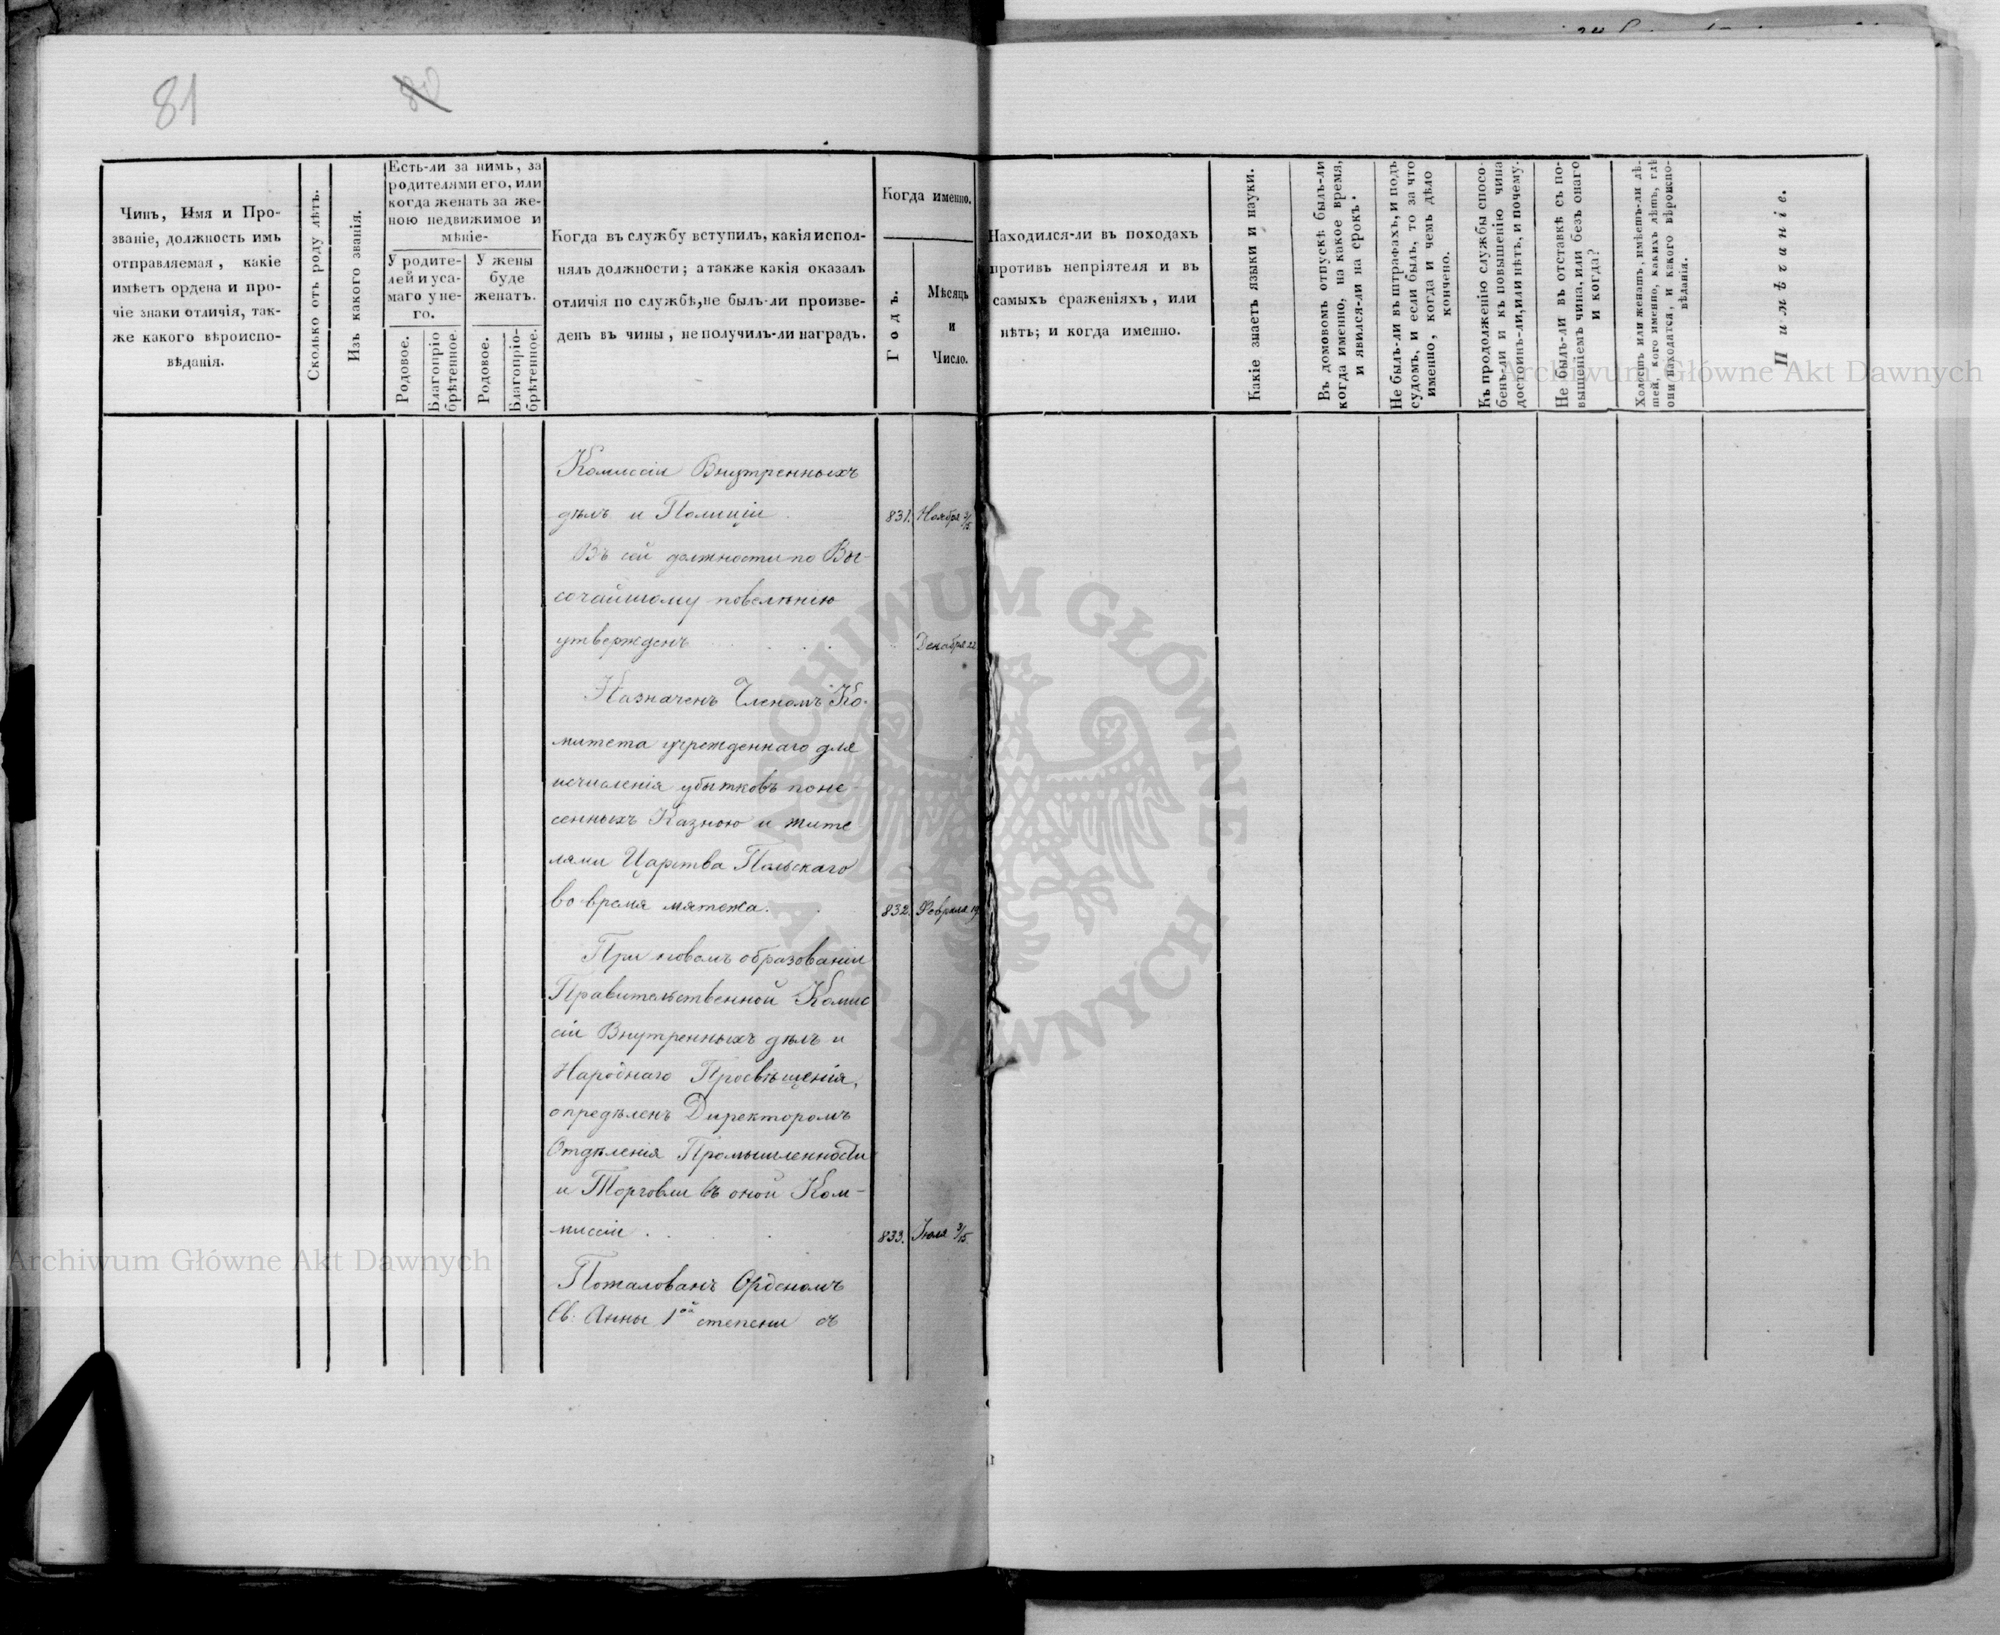 81
80
Чинъ, Имя и Про-
званіе, должность имъ
отправляемая, какіе
имѣетъ ордена и про-
чіе знаки отличія, так-
же какого вѣроиспо-
вѣданія.
Сколько отъ роду лѣтъ.
Изъ какого званія.
Есть-ли за нимъ, за
родителями его, или
когда женатъ за же-
ною недвижимое и
мѣніе-
У родите-
лей и у са-
маго у не-
го.
У жены
буде
женатъ.
Родовое.
Благопріо
брѣтенное.
Родовое.
Благопріо-
брѣтенное.
Когда въ службу вступилъ, какія испол-
нялъ должности; а также какія оказалъ
отличія по службѣ, не былъ-ли произве-
денъ въ чины, не получилъ-ли наградъ.
Когда именно.
Годъ.
Мѣсяцъ
и
Число.
Находился-ли въ походахъ
противъ непріятеля и въ
самыхъ сраженіяхъ, или
нѣтъ; и когда именно.
Какіе знаетъ языки и науки.
Въ домовомъ отпускѣ былъ-ли
когда именно, на какое время,
и явился-ли на срокъ.
Не былъ-ли въ штрафахъ, и подъ
судомъ, и если былъ, то за что
именно, когда и чемъ дѣло
кончено.
Къ продолженію службы спосо-
бенъ-ли и къ повышенію чина
достоинъ-ли, или нѣтъ, и почему.
Не былъ-ли въ отставкѣ съ по-
вышеніемъ чина, или безъ онаго
и когда?
Холостъ или женатъ, имѣетъ-ли дѣ-
тей, кого именно, какихъ лѣтъ, гдѣ
они находятся, и какого вѣроиспо-
вѣданія.
Примѣчаніе.
Комиссіи Внутренныхъ
дѣлъ и Полиціи. 831. Ноября 3/15
Въ сей должности по Вы-
сочайшому повелѣнію
утвержденъ . . . Декабря 22
Назначенъ Членомъ Ко-
митета учрежденнаго для
исчисленія убытковъ поне-
сенныхъ Казною и жите
лями Царства Польскаго
во время мятежа. 832. Февраля 19
При новомъ образованіи
Правительственной Комис
сіи Внутренныхъ дѣлъ и
Народнаго Просвѣщенія,
опредѣленъ Директоромъ
Отдѣленія Промышленности
и Торговли въ оной Ком-
миссіи . . . 833. Іюля 3/15.
Пожалованъ Орденомъ
Св: Анны 1ой степени съ
Archiwum Główne Akt Dawnych
Archiwum Główne Akt Dawnych
ARCHIWUM GŁÓWNE · AKT DAWNYCH ·